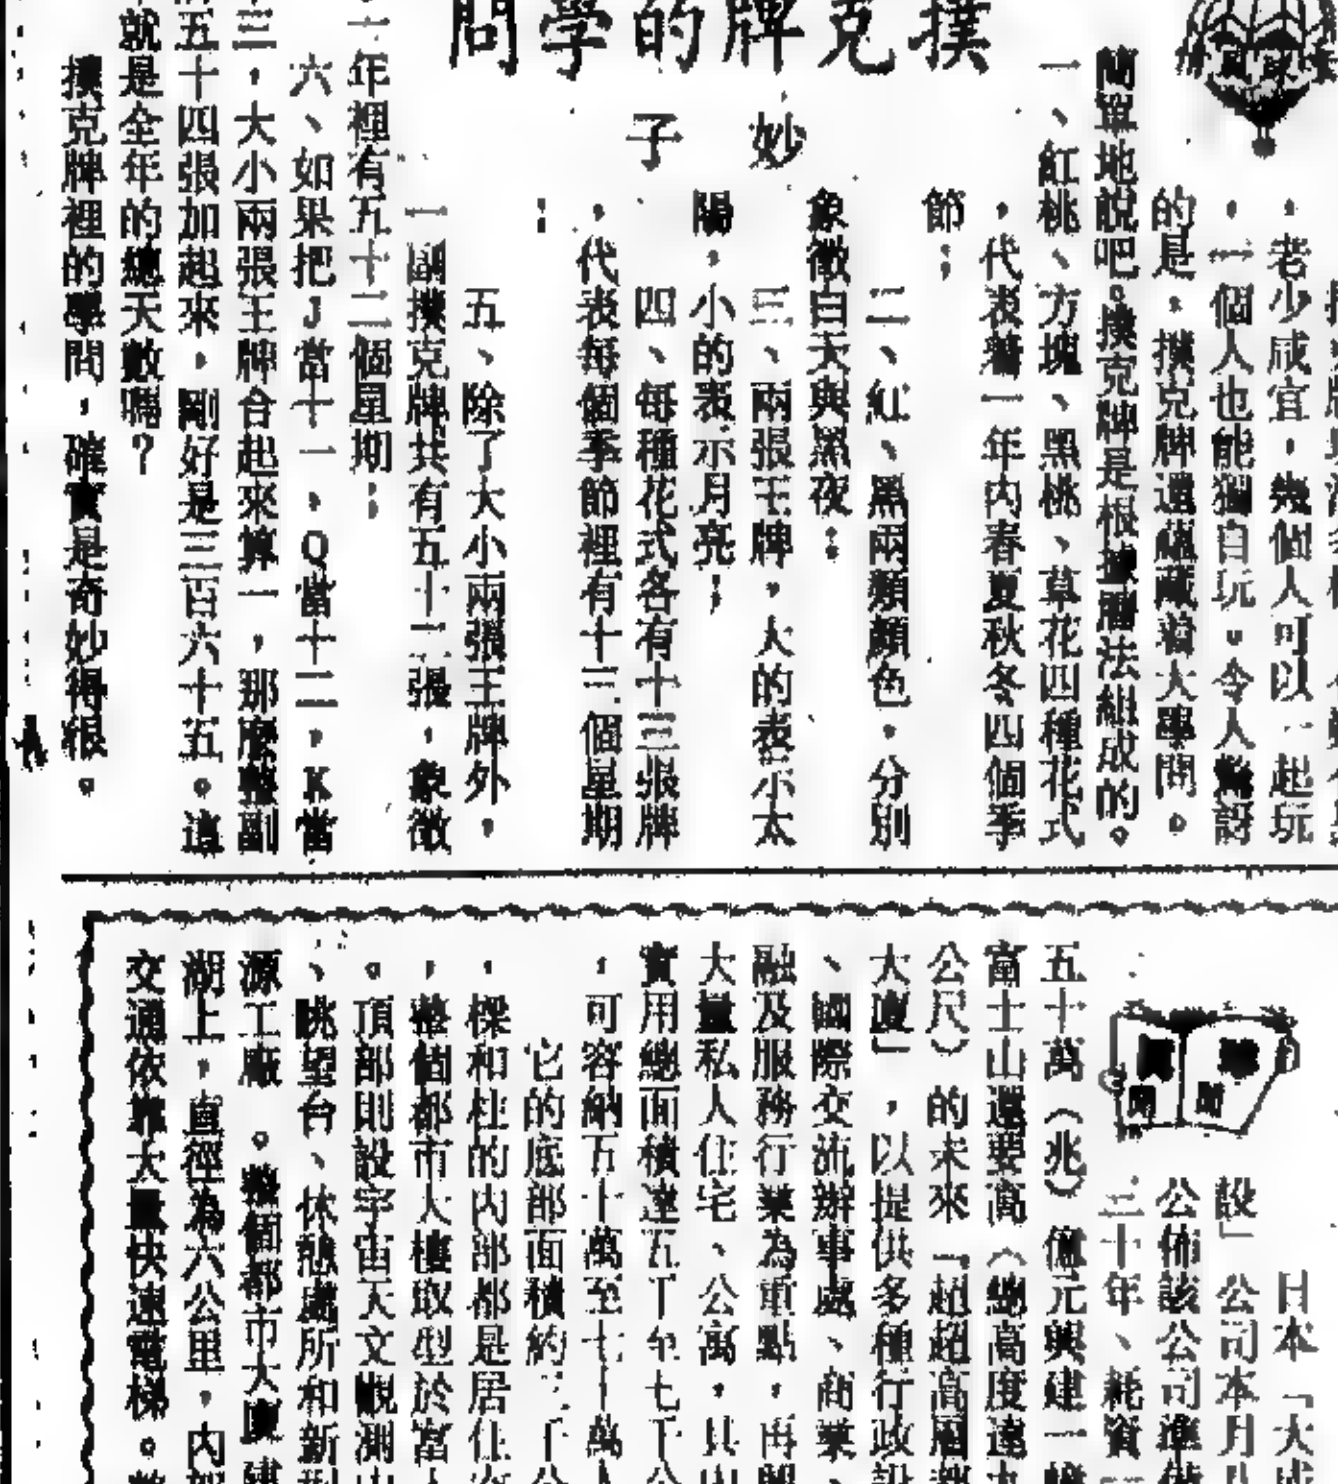 撲克牌的學問
妙子
，老少咸宜，幾個人可以一起玩
，一個人也能獨自玩。令人驚訝
的是，撲克牌還蘊藏着大學問。
簡單地說吧。撲克牌是根據曆法組成的。
一、紅桃、方塊、黑桃、草花四種花式
，代表着一年內春夏秋冬四個季
節；
二、紅、黑兩類顏色，分別
象徵白天與黑夜；
三、兩張王牌，大的表示太
陽，小的表示月亮；
四、每種花式各有十三張牌
，代表每個季節裡有十三個星期
；
五、除了大小兩張王牌外，
一副撲克牌共有五十二張，象徵
十年裡有五十二個星期；
六、如果把J當十一、Q當十二，K當
三，大小兩張王牌合起來算一，那麼整副
五十四張加起來，剛好是三百六十五。這
就是全年的總天數嗎？
撲克牌裡的學問，確實是奇妙得很。
日本「大成
設」公司本月
公佈該公司準備
三十年、耗資
五十萬（兆）億元興建一幢
富士山還要高（總高度達
公尺）的未來「超超高層
大廈」，以提供多種行政設
、國際交流辦事處、商業、
融及服務行業為重點，再
大量私人住宅、公寓，其
實用總面積達五千至七千公
，可容納五十萬至七十萬人
它的底部面積約三千公
，樑和柱的內部都是居住
，整個都市大樓取型於富
。頂部則設宇宙天文觀測
、眺望台、休憩處所和新型
源工廠。整個都市大廈建
湖上，直徑為六公里，內
交通依靠大量快速電梯。